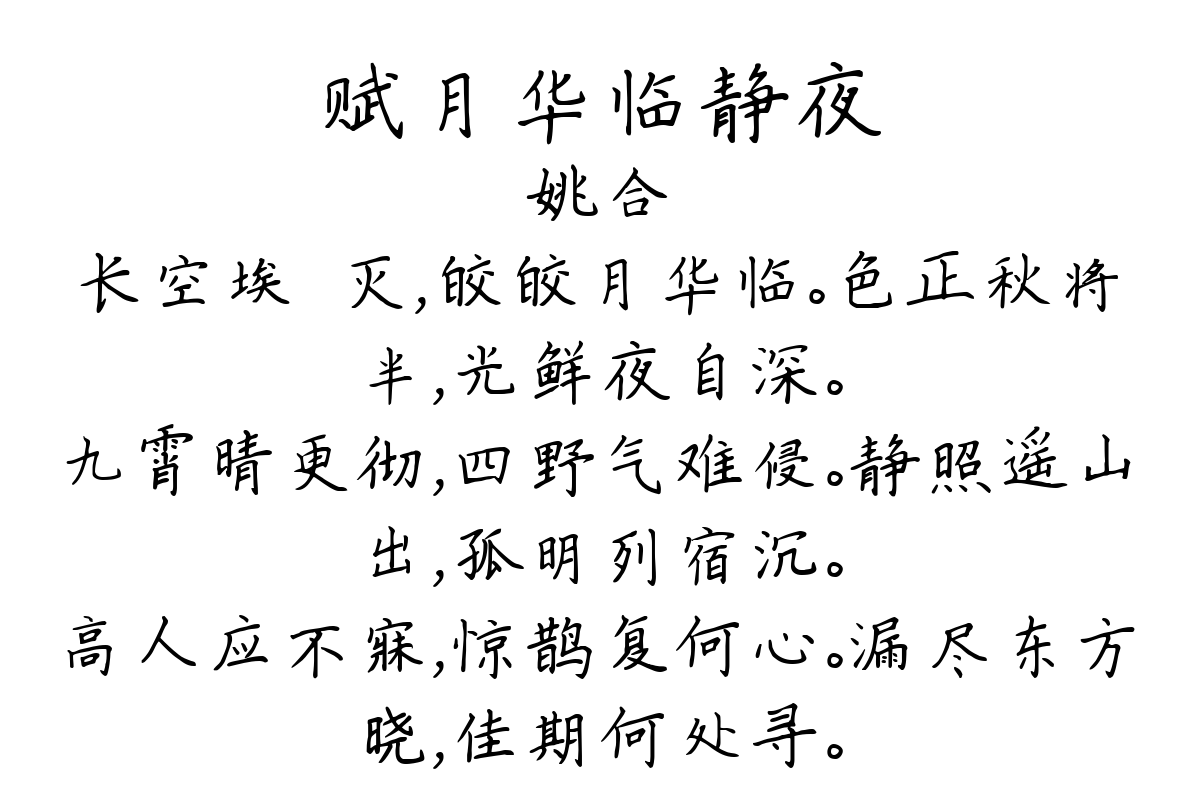 赋月华临静夜
姚合
长空埃 灭,皎皎月华临。色正秋将
半,光鲜夜自深。
九霄晴更彻,四野气难侵。静照遥山
出,孤明列宿沉。
高人应不寐,惊鹊复何心。漏尽东方
晓,佳期何处寻。